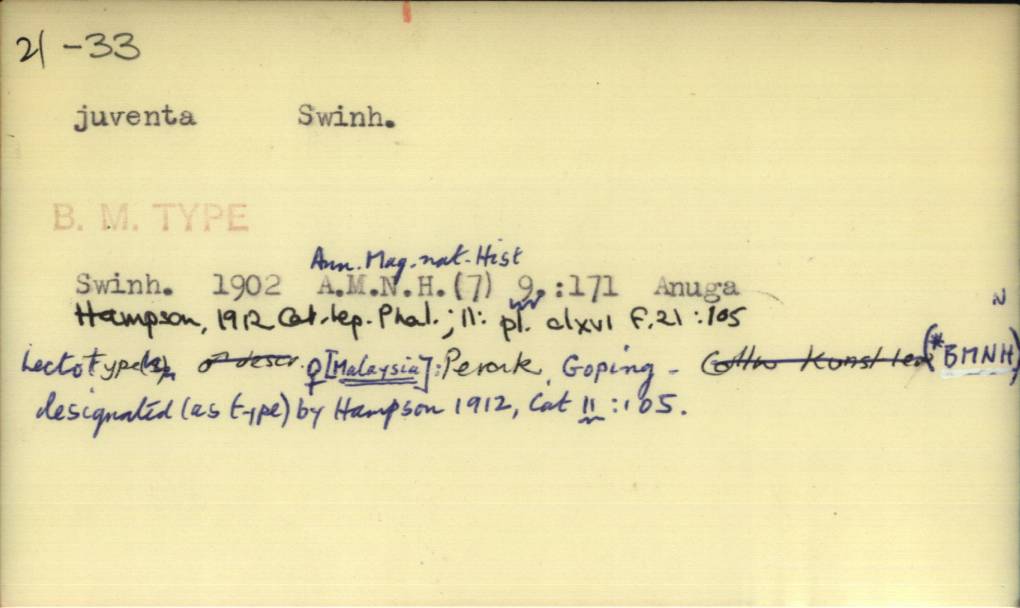 21 -33
juventa Swinh.
B. M. TYPE
Ann. Mag. nat. Hist
Swinh. 1902 A.M.N.H.(7) 9.:171 Anuga
N
Hampson, 1912 Cat. lep. Phal.; 11: pl. clxvi f.21 :105
Lectotype ♀ [Malaysia]: Perak, Goping - (*BMNH)
designated (as type) by Hampson 1912, Cat 11 :105.